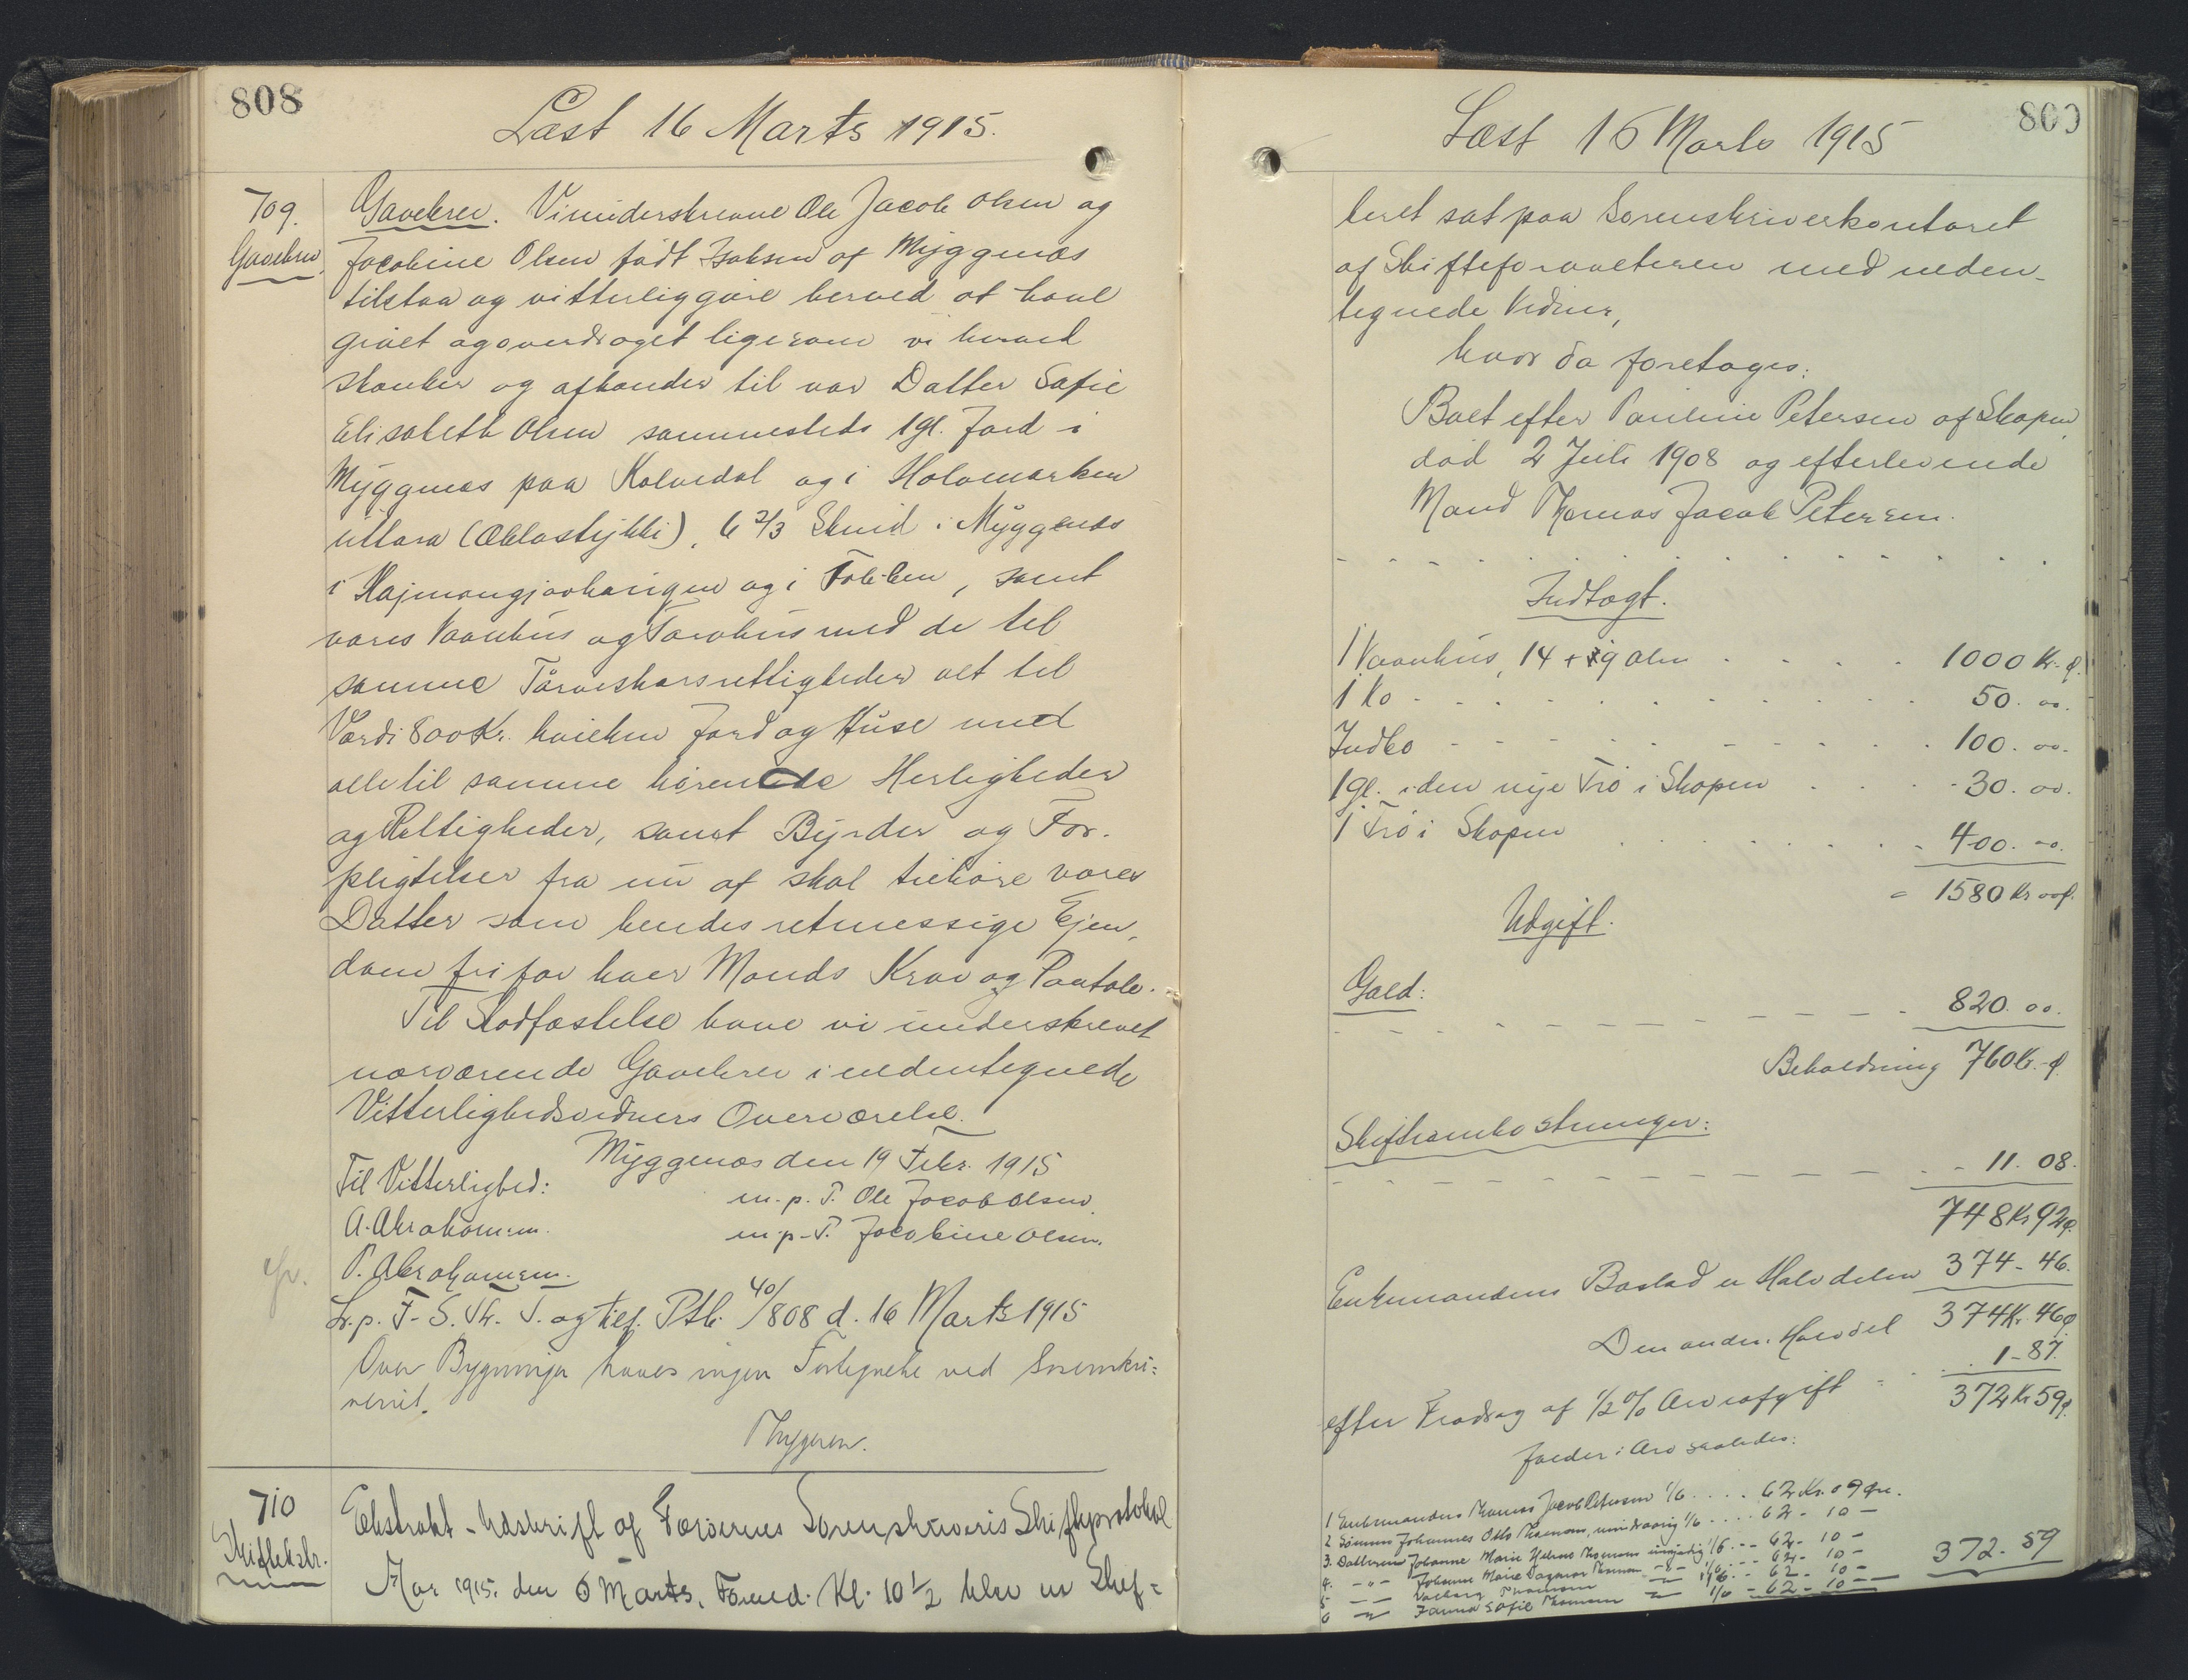 808
Læst 16 Marts 1915.
709.
Gavebrev.
Gavebrev. Vi underskrevne Ole Jacob Olsen og
Jacobine Olsen født Isaksen af Myggenæs
tilstaa og vitterliggøre herved at have
givet og overdraget ligesom vi herved
skænker og afhænder til vor Datter Sofie
Elisabeth Olsen sammesteds 1 gl. Jord i
Myggenæs paa Kalvedal og i Holomarken
uttara (Æklastykki), 6 2/3 Skind i Myggenæs
i og i, samt
vores Vaanhus og Tørvhus med de til
samme Tørveskærsrettigheder alt til
Værdi 800 Kr. hvilken Jord og Huse med
alle til samme hørende Herligheder
og Rettigheder, samt Byrder og For-
pligtelser fra nu af skal tilhøre vores
Datter som hendes retmessige Ejen-
dom fri for hver Mands Krav og Paatale.
Til Stadfæstelse have vi underskrevet
nærværende Gavebrev i nedentegnede
Vitterlighedsvidners Overværelse.
Myggenæs den 19 Febr. 1915
Til Vitterlighed:
m. p. P. Ole Jacob Olsen.
A. Abrahamsen.
m. p. P. Jacobine Olsen.
P. Abrahamsen.
cfr.
L. p. F. S. Th. T. og tilf. Ptb. 40/808 d. 16 Marts 1915
Over Bygninger haves ingen Fortegnelse ved Sorenskri-
veriet.
Thygesen.
710
Skifteekstr.
Ekstrakt-Udskrift af Færøernes Sorenskriveris Skifteprotokol
Aar 1915. den 6 Marts. Formd. Kl. 10 1/2 blev en Skif-
809
Læst 16 Marts 1915
teret sat paa Sorenskriverkontoret
af Skifteforvalteren med neden-
tegnede Vidner,
hvor da foretoges:
Boet efter Pauline Petersen af Skopen
død 2 Juli 1908 og efterlevende
Mand Thomas Jacob Petersen.
Indtægt.
1 Vaanhus, 14 + 9 Alen . . . . 1000 Kr. - Ø.
1 Ko - . . . . . . 50. 00.
Indbo - - - - - - 100. 00.
1 gl. i den nye Trø i Skopen . . . - 30. 00.
1 Trø i Skopen . . . . . . - 400. 00.
= 1580 Kr 00 Ø.
Udgift.
Gæld:
- - - - - - - - - 820. 00.
Beholdning 760 Kr. - Ø.
Skifteomkostninger:
- - - - - - - - - 11. 08.
748 Kr 92 Ø.
Enkemandens Boslod er Halvdelen 374 - 46.
Den anden Halvdel 374 Kr. 46 Ø
efter Fradrag af 1/2 % Arveafgift - . . 1 - 87.
372 Kr 59 Ø.
falder i Arv saaledes:
1 Enkemanden Thomas Jacob Petersen 1/6 . . . . 62 Kr. 09 Øre.
2 Sønnen Johannes Otto Thomsen, mindreaarig 1/6 . . . . 62 - 10 -
3. Datteren Johanne Marie Helene Thomsen umyndig 1/6 - - - 62 - 10 -
4. - " - Johanne Marie Dagmar Thomsen - " - 1/6 - - - 62 - 10 -
5 - " - Valborg Thomsen - " - 1/6 - - 62 - 10 -
6 - " - Fanna Sofie Thomsen - " - 1/6 - 62 - 10 -
372 - 59